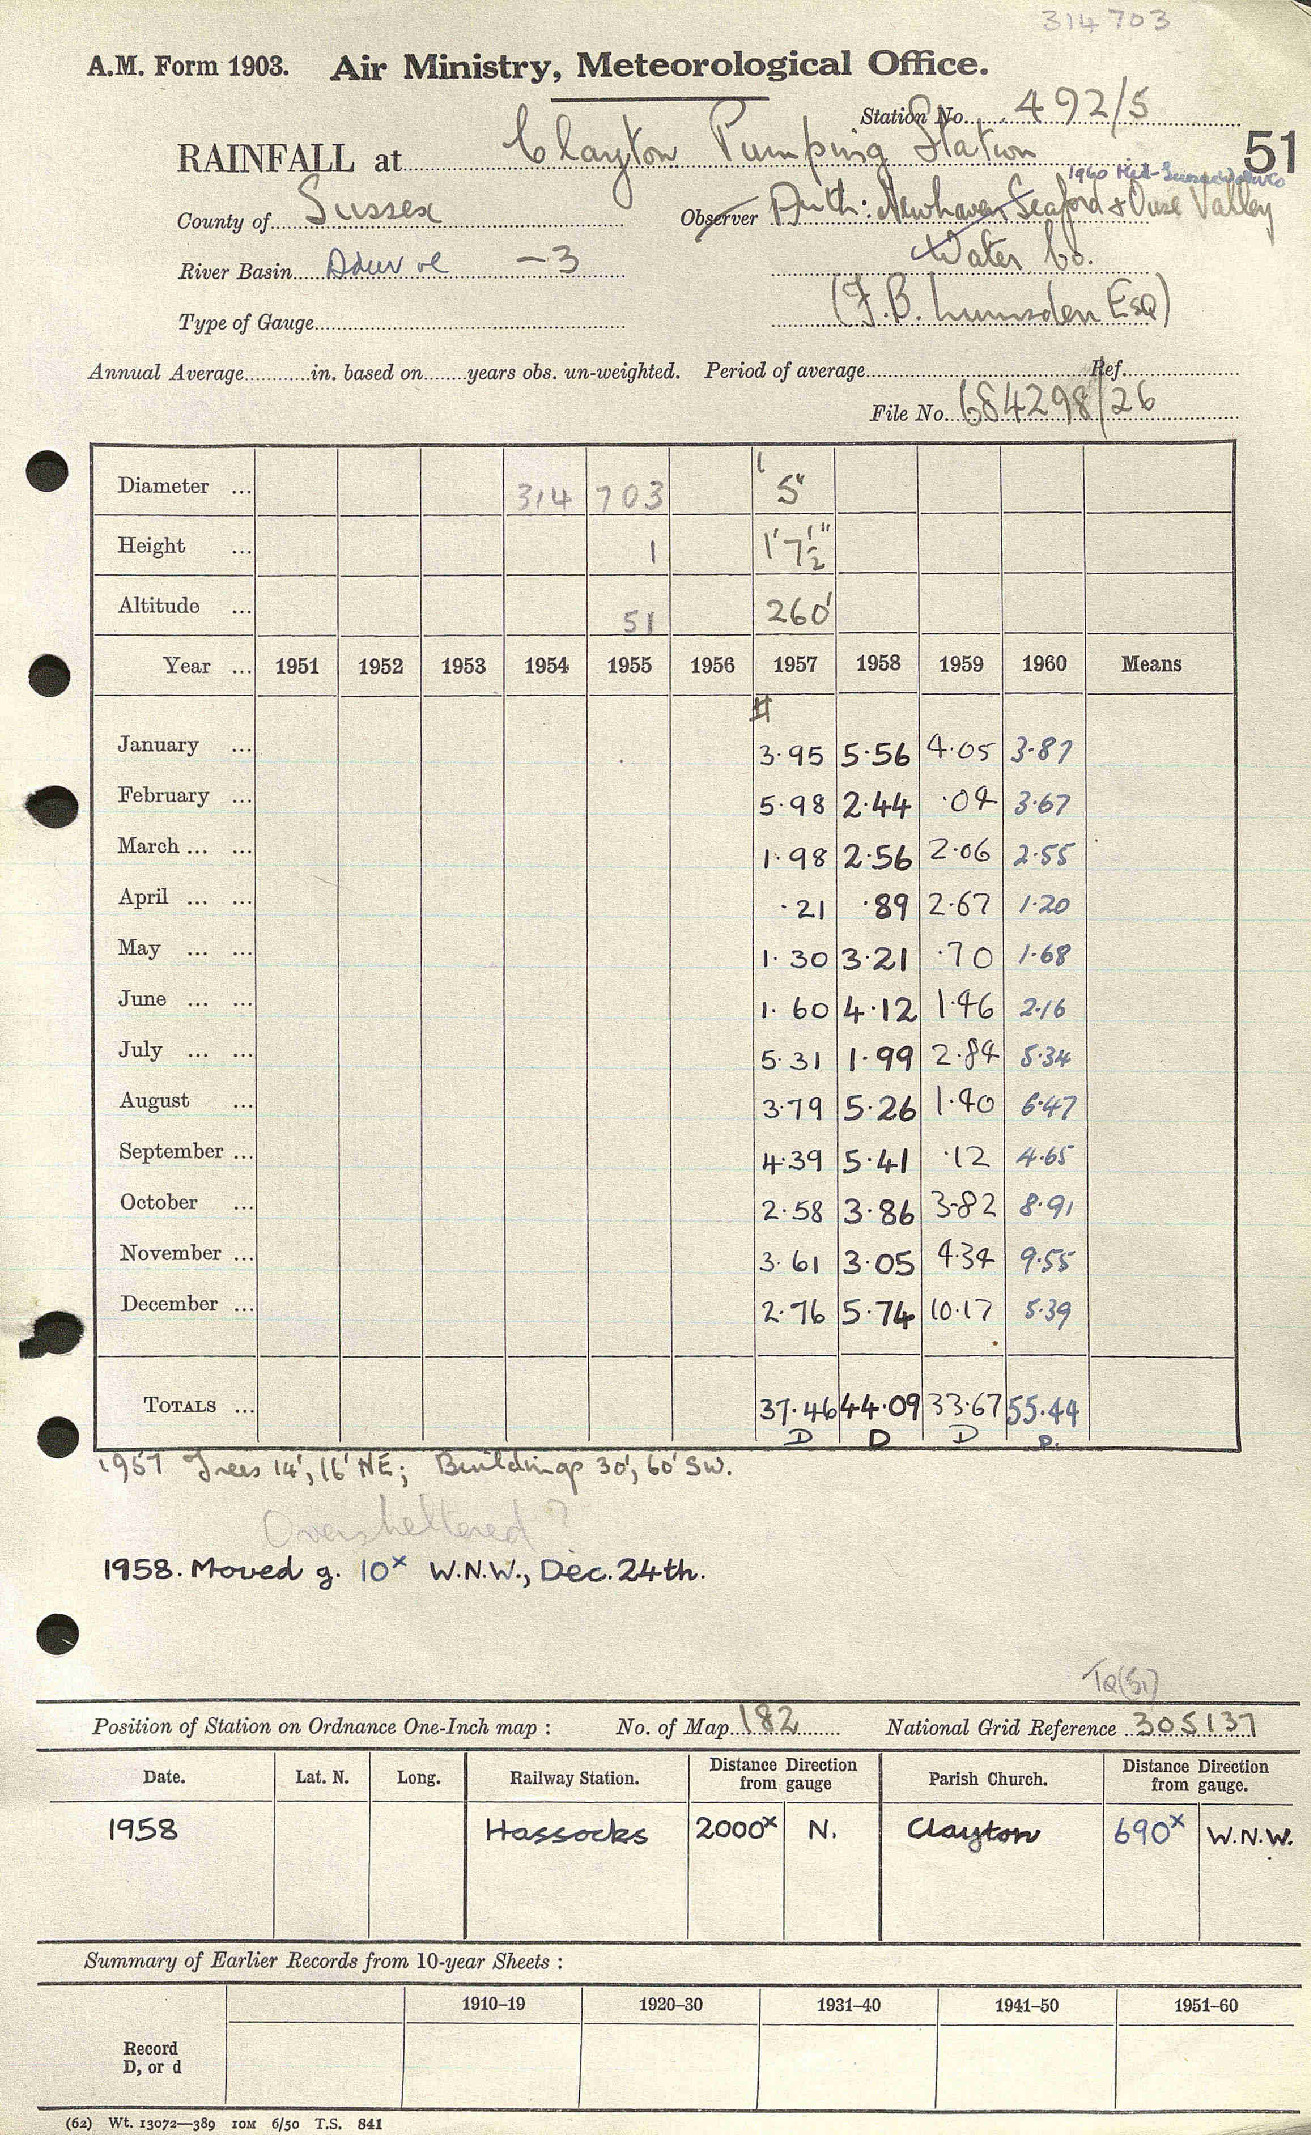 314703
A.M. Form 1903. Air Ministry, Meteorological Office.
Station No. 492/5
RAINFALL at Clayton Pumping Station 51
1960 Mid-Sussex Water Co
County of Sussex Observer Auth: Newhaven Seaford & Ouse Valley
Water Co.
River Basin Adur -3
(F.B. Lumsden Esq)
Type of Gauge
Annual Average in. based on years obs. un-weighted. Period of average Ref.
File No. 684298/26
Diameter ... 314 703 5"
Height ... 1 1'7½"
Altitude ... 51 260'
Year ... 1951 1952 1953 1954 1955 1956 1957 1958 1959 1960 Means
January ... 3.95 5.56 4.05 3.87
February ... 5.98 2.44 .04 3.67
March ... ... 1.98 2.56 2.06 2.55
April ... ... .21 .89 2.67 1.20
May ... ... 1.30 3.21 .70 1.68
June ... ... 1.60 4.12 1.46 2.16
July ... ... 5.31 1.99 2.84 5.34
August ... 3.79 5.26 1.40 6.47
September ... 4.39 5.41 .12 4.65
October ... 2.58 3.86 3.82 8.91
November ... 3.61 3.05 4.34 9.55
December ... 2.76 5.74 10.17 5.39
TOTALS ... 37.46 44.09 33.67 55.44
D D D D.
1957 Trees 14', 16' NE; Buildings 30', 60' SW.
Oversheltered?
1958. Moved g. 10x W.N.W., Dec. 24th.
TQ(51)
Position of Station on Ordnance One-Inch map : No. of Map 182 National Grid Reference 305137
Date. Lat. N. Long. Railway Station. Distance Direction from gauge Parish Church. Distance Direction from gauge.
1958 Hassocks 2000x N. Clayton 690x W.N.W.
Summary of Earlier Records from 10-year Sheets :
1910–19 1920–30 1931–40 1941–50 1951–60
Record
D, or d
(62) Wt. 13072—389 10M 6/50 T.S. 841